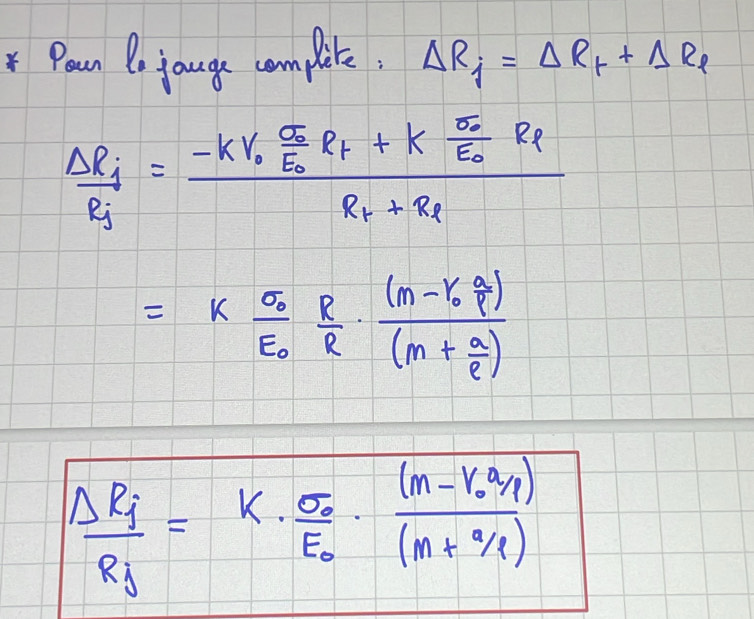 * Pour la jauge complète : ΔRj = ΔRt + ΔRl
ΔRj/Rj = (-K ν₀ σ₀/E₀ Rt + K σ₀/E₀ Rl) / (Rt + Rl)
= K σ₀/E₀ R/R · (m - ν₀ a/l) / (m + a/l)
ΔRj/Rj = K · σ₀/E₀ · (m - ν₀ a/l) / (m + a/l)